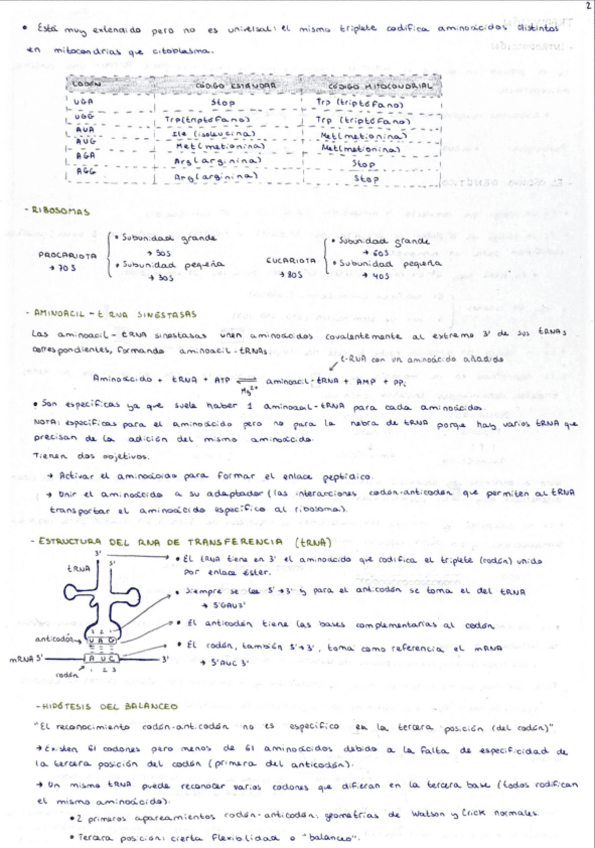 2
• Está muy extendido pero no es universal: el mismo triplete codifica aminoácidos distintos
en mitocondrias que citoplasma.
CODÓN CÓDIGO ESTÁNDAR CÓDIGO MITOCONDRIAL
UGA Stop Trp (triptófano)
UGG Trp (triptófano) Trp (triptófano)
AUA Ile (isoleucina) Met (metionina)
AUG Met (metionina) Met (metionina)
AGA Arg (arginina) Stop
AGG Arg (arginina) Stop
- RIBOSOMAS
PROCARIOTA
→ 70S
• Subunidad grande
→ 50S
• Subunidad pequeña
→ 30S
EUCARIOTA
→ 80S
• Subunidad grande
→ 60S
• Subunidad pequeña
→ 40S
- AMINOACIL - t RNA SINESTASAS
Las aminoacil - tRNA sinestasas unen aminoácidos covalentemente al extremo 3' de sus tRNAs
correspondientes, formando aminoacil-tRNAs.
t-RNA con un aminoácido añadido
Aminoácido + tRNA + ATP ⇌ aminoacil-tRNA + AMP + PPi
Mg2+
• Son específicas ya que suele haber 1 aminoacil-tRNA para cada aminoácido.
NOTA: específicas para el aminoácido pero no para la hebra de tRNA porque hay varios tRNA que
precisan de la adición del mismo aminoácido.
Tienen dos objetivos:
→ Activar el aminoácido para formar el enlace peptídico.
→ Unir el aminoácido a su adaptador (las interacciones codón-anticodón que permiten al tRNA
transportar el aminoácido específico al ribosoma).
- ESTRUCTURA DEL RNA DE TRANSFERENCIA (tRNA)
3'
5'
tRNA
• El tRNA tiene en 3' el aminoácido que codifica el triplete (codón) unido
por enlace éster.
• Siempre se lee 5'→3' y para el anticodón se toma el del tRNA
→ 5'GAU3'
• El anticodón tiene las bases complementarias al codón
• El codón, también 5'→3', toma como referencia el mRNA
→ 5'AUC 3'
3 2 1
anticodón
U A G
mRNA 5' A U C 3'
codón 1 2 3
- HIPÓTESIS DEL BALANCEO
"El reconocimiento codón-anticodón no es específico en la tercera posición (del codón)"
→ Existen 61 codones pero menos de 61 aminoácidos debido a la falta de especificidad de
la tercera posición del codón (primera del anticodón).
→ Un mismo tRNA puede reconocer varios codones que difieran en la tercera base (todos codifican
el mismo aminoácido).
• 2 primeros apareamientos codón-anticodón: geometrías de Watson y Crick normales.
• Tercera posición: cierta flexibilidad o "balanceo".